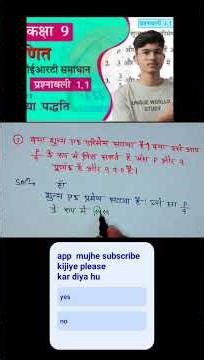 प्रश्नावली 1.1
कक्षा 9
गणित
प्रश्नावली 1.1
UNIQUE WORLD
STUDY
① क्या शून्य एक परिमेय संख्या है? क्या इसे आप
p/q के रूप में लिख सकते हैं जहाँ p और q
पूर्णांक हैं और q ≠ 0 है।
हाँ
शून्य एक परिमेय संख्या है। इसे हम p/q
के रूप में लिख
app mujhe subscribe
kijiye please
kar diya hu
yes
no